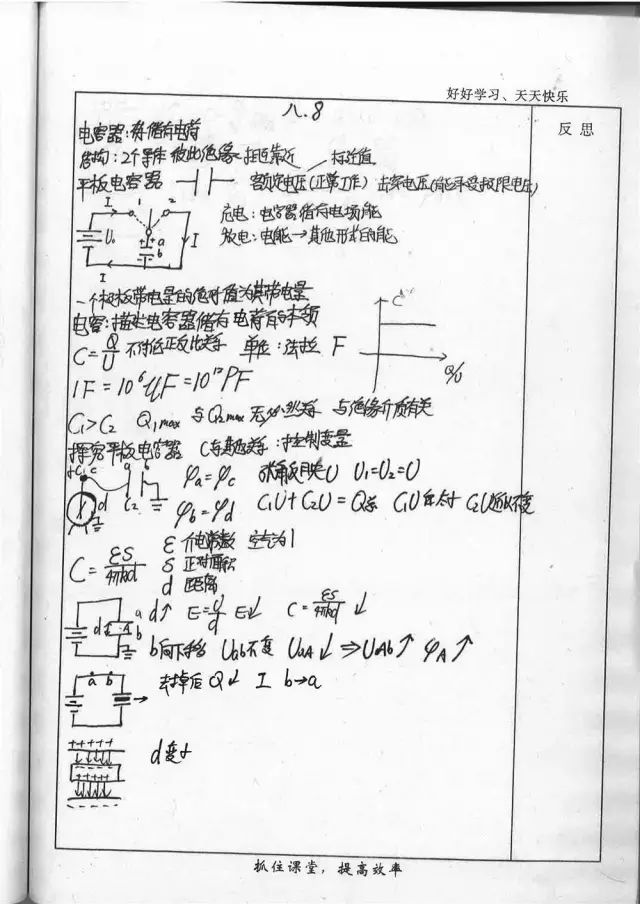 好好学习、天天快乐
反思
八.8
电容器:存储有电荷
结构:2个导体 彼此绝缘 挨近靠近 标注值
平板电容器 额定电压(正常工作) 击穿电压(能承受极限电压)
1 2 I U₀ a b I I
充电:电容器储有电场能
放电:电能→其他形式的能
一个极板带电量的绝对值为其带电量
电容:描述电容器储存电荷的本领
C=Q/U 不存在正反比关系 单位:法拉 F
C Q/U
1F=10⁶μF=10¹²PF
C₁>C₂ Q₁max 与Q₂max 无必然关系 与绝缘介质有关
探究平板电容器 C与其他关系:控制变量
C₁ c a b d C₂
φa=φc U U₁=U₂=U
φb=φd C₁U+C₂U=Q总 C₁U C₂U
C=εS/4πkd
ε 介电常数 空气为1
S 正对面积
d 距离
d A a b
d↑ E=U/d E↓ C=εS/4πkd ↓
b向下移 Uab不变 UaA↓ ⇒UAb↑ φA↑
a b
去掉后Q↓ I b→a
+++++
+++++
d变小
抓住课堂,提高效率